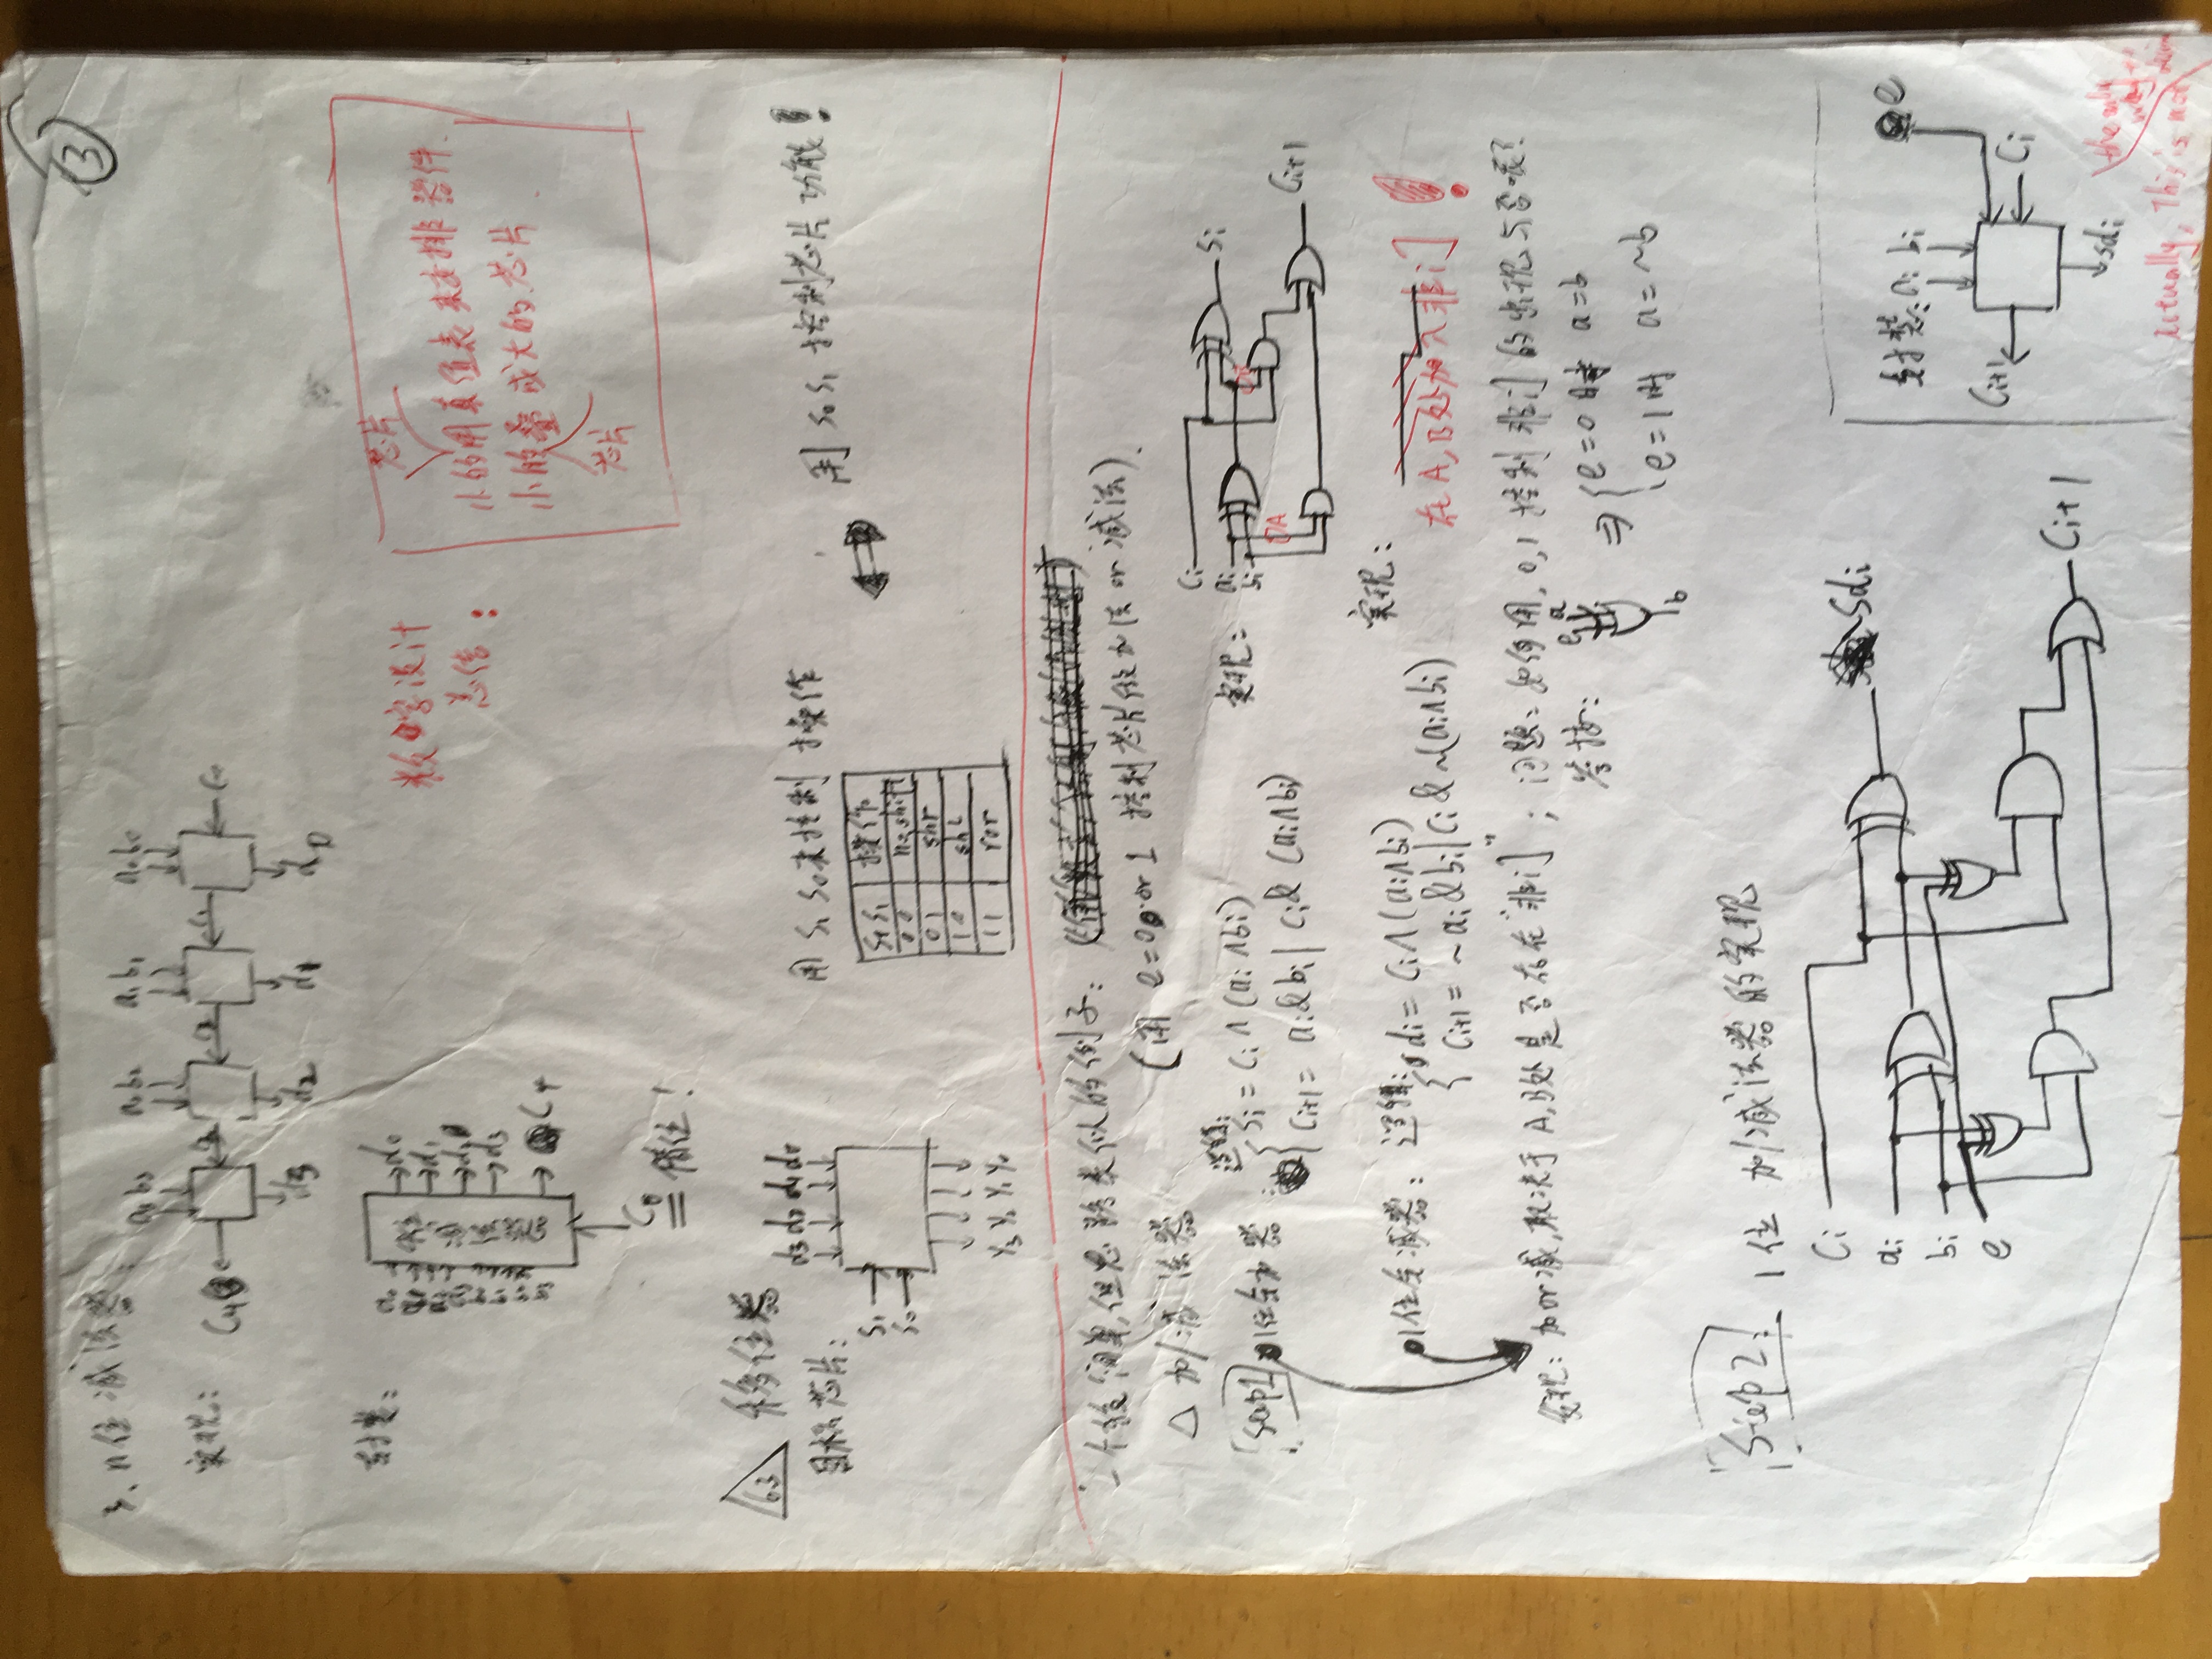 ③
3、n位减法器:
a3 b3 a2 b2 a1 b1 a0 b0
实现: C4 C3 C2 C1 C0
d3 d2 d1 d0
封装:
d0
d1
d2
d3
C4
C0
借位!
数字设计
总结:
芯片
小的用真值表来安排器件.
小的叠成大的芯片.
芯片
63 移位器
目标芯片: d3 d2 d1 d0
S1
S0
Y3 Y2 Y1 Y0
用 S1 S0来控制 操作
S1 S0 操作
0 0 no shift
0 1 shr
1 0 shl
1 1 ror
用 S0 S1 控制芯片功能!
一个较简单,但思路类似的例子:
(用 e=0 or 1 控制芯片做加法 or 减法).
△ 加/减法器
Step1 1位全加器: 逻辑:
Si = Ci∧(ai∧bi)
Ci+1 = ai&bi | Ci&(ai∧bi)
实现: Ci
ai
bi
Si
A
B
Ci+1
1位全减器: 逻辑: di = Ci∧(ai∧bi)
Ci+1 = ~ai&bi | Ci&~(ai∧bi)
实现:
在A,B处加入非门!
发现: 加or减,取决于A,B处是否存在"非门"; 问题: 如何用 0,1 控制非门的出现与否呢?
答按: e a
b
⇒ { e=0时 a=b
e=1时 a=~b
Step2: 1位 加/减法器的实现
Ci
ai
bi
e
Sdi
Ci+1
封装: ai bi e
Ci+1 Ci
sdi
the only
way to
Actually, This is not